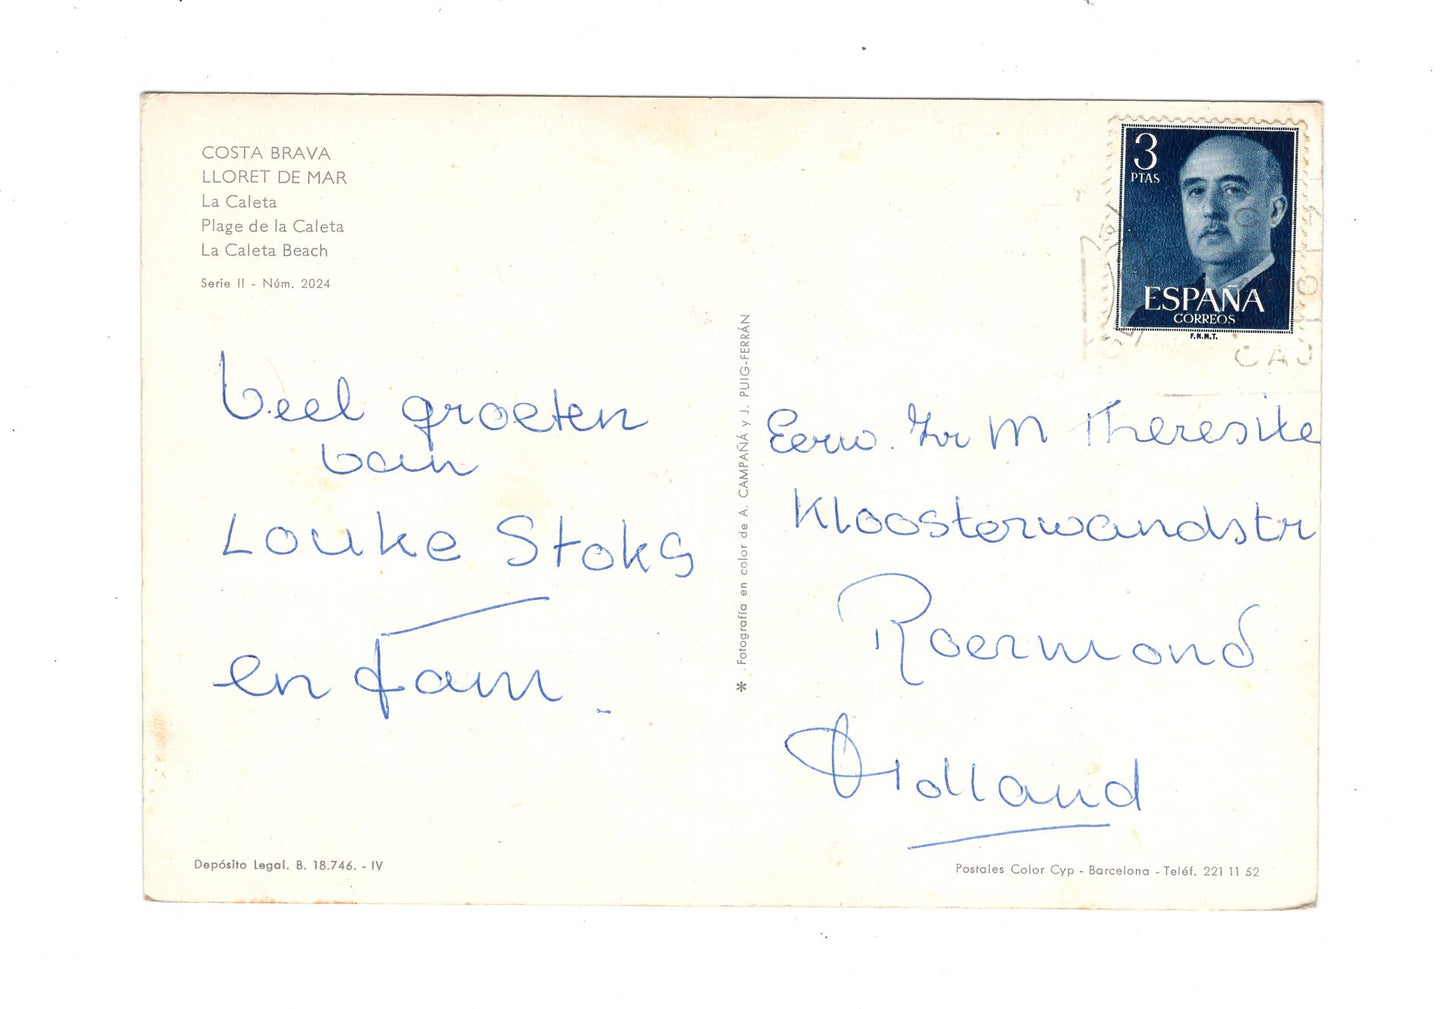 COSTA BRAVA
LLORET DE MAR
La Caleta
Plage de la Caleta
La Caleta Beach
Serie II - Núm. 2024
Veel groeten
van
Louke Stoks
en fam.
Depósito Legal. B. 18.746. - IV
* Fotografía en color de A. CAMPAÑÁ y J. PUIG-FERRÁN
3
PTAS
ESPAÑA
CORREOS
F.N.M.T.
Eerw. Zr M Theresite
Kloosterwandstr
Roermond
Holland
Postales Color Cyp - Barcelona - Teléf. 221 11 52